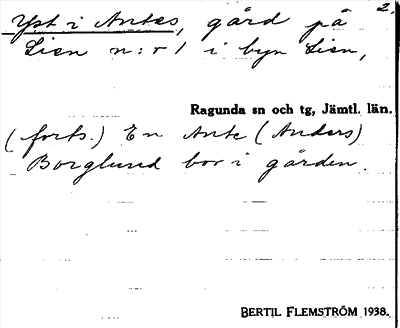 2.
Yst i Antes, gård på
Lien n:r 1 i byn Lien,
Ragunda sn och tg, Jämtl. län.
(forts.) En Ante (Anders)
Borglund bor i gården.
BERTIL FLEMSTRÖM 1938.